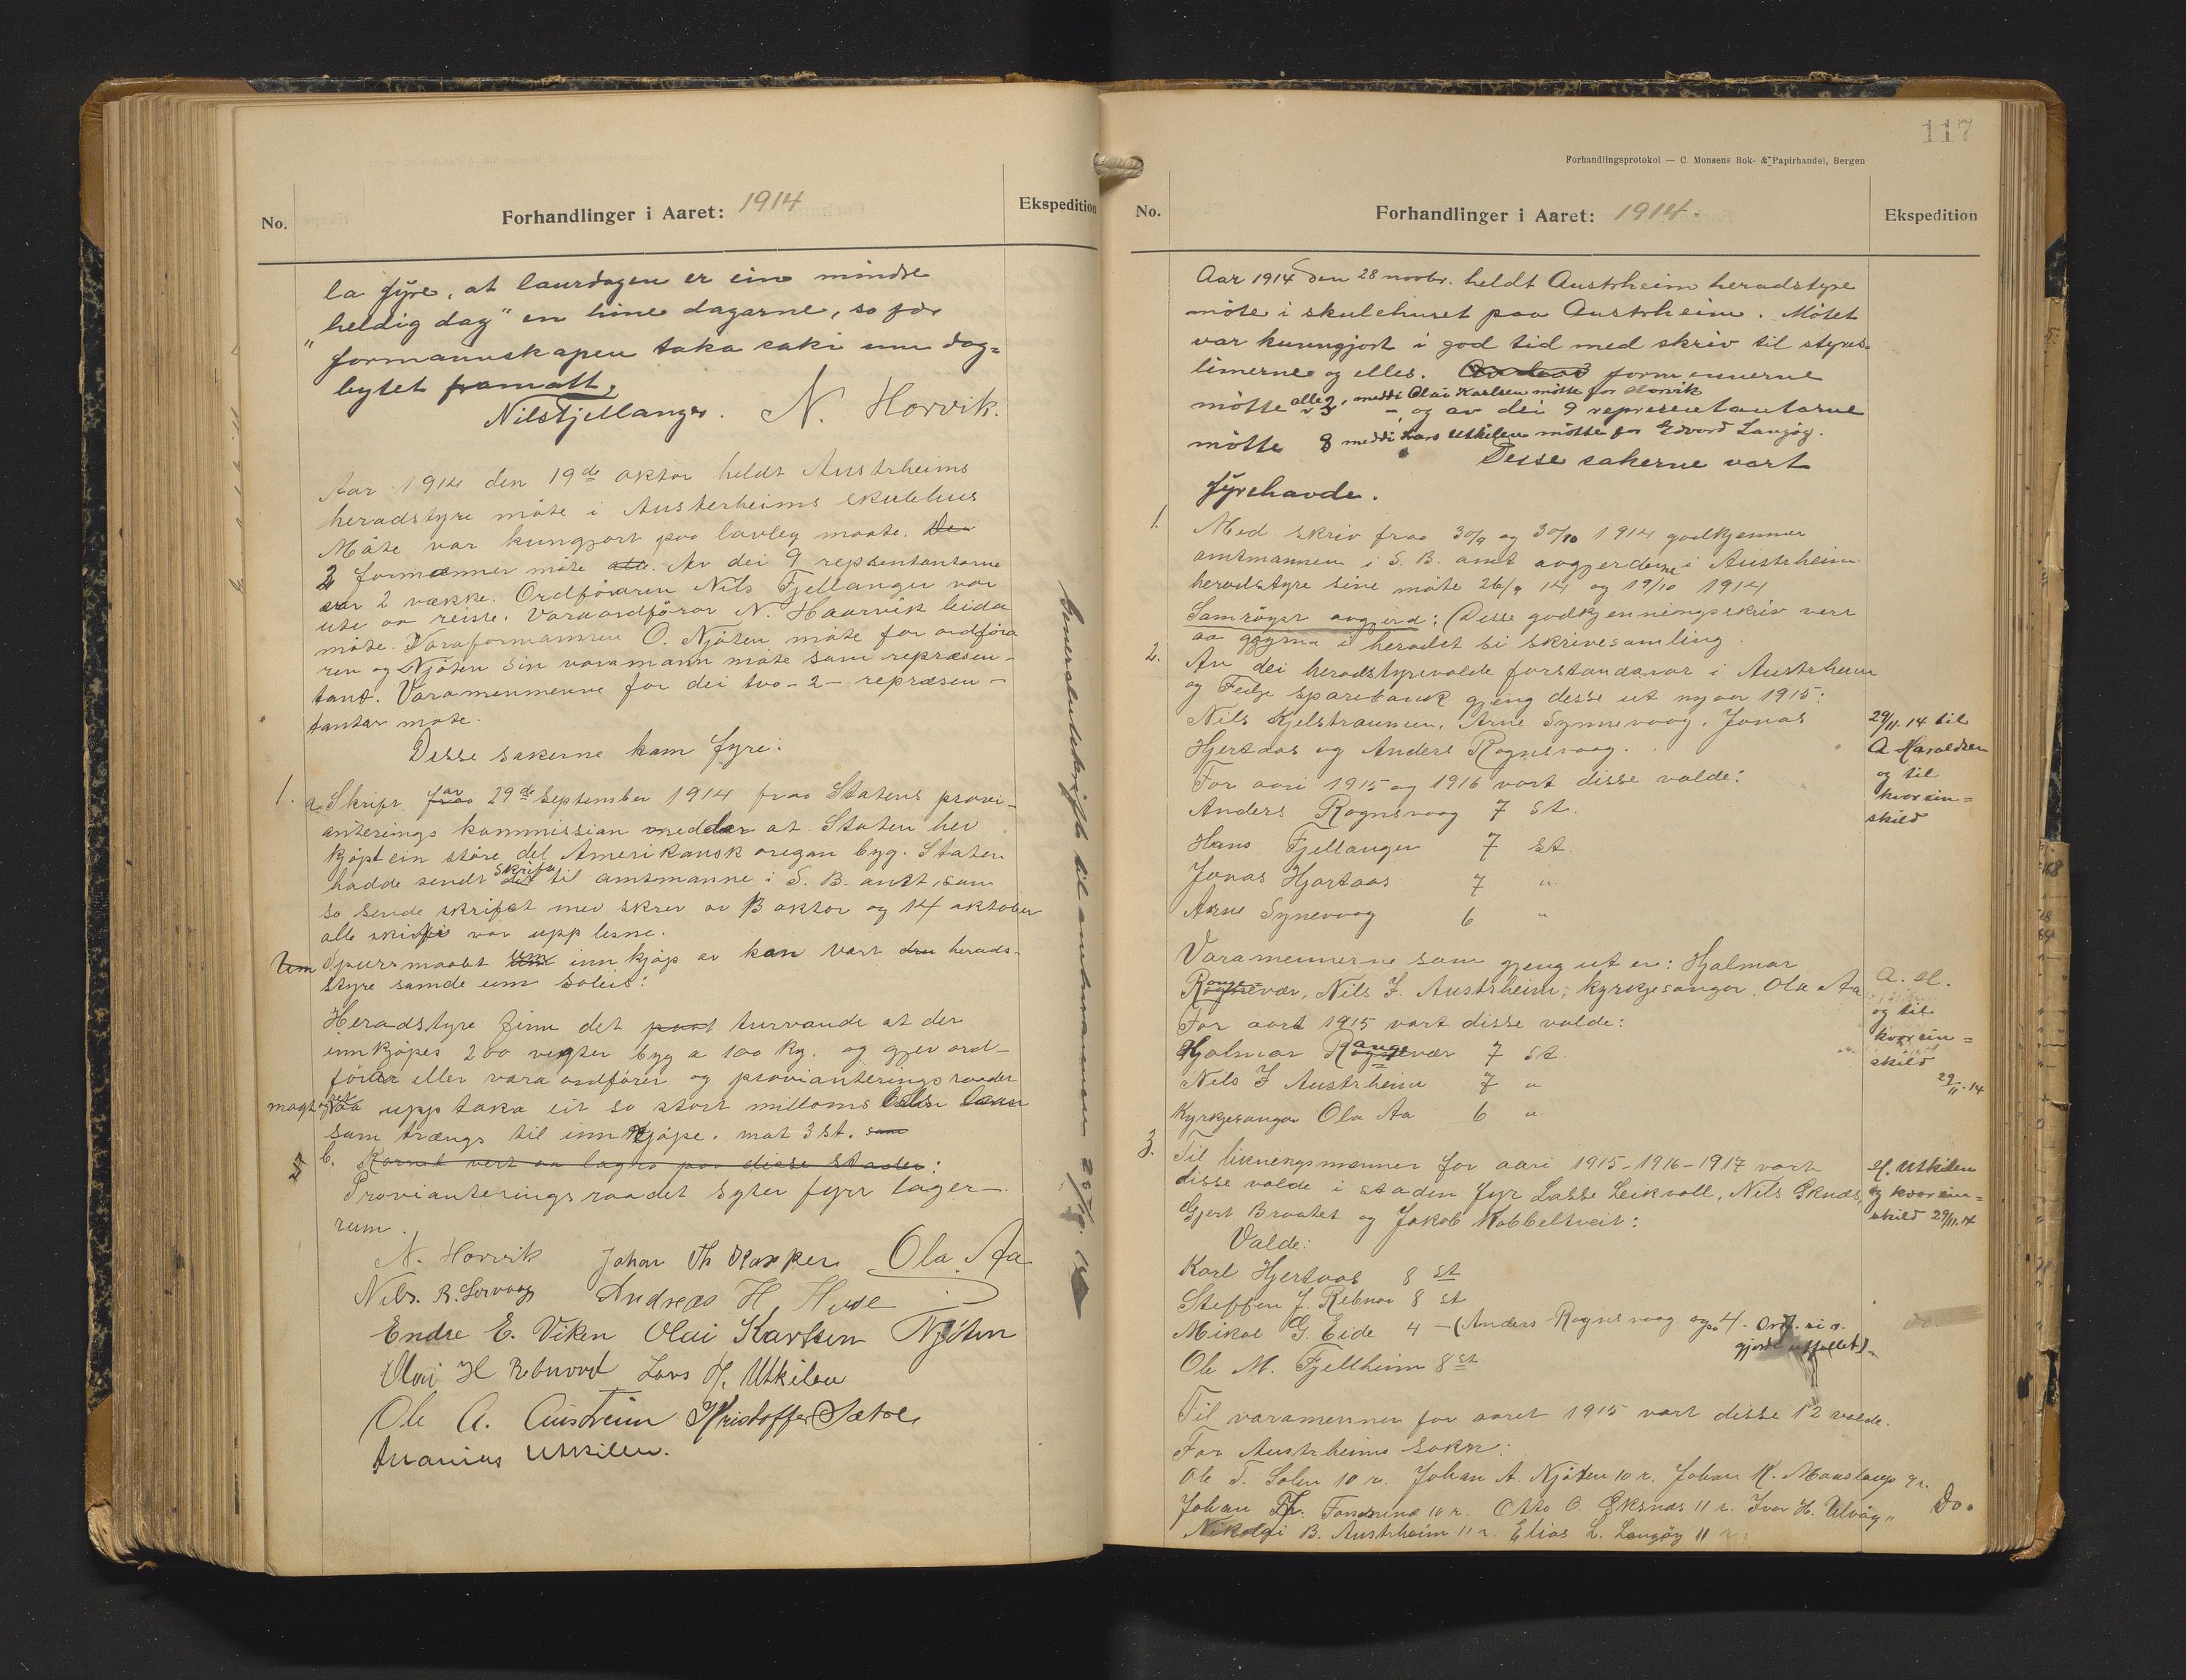 No.
Forhandlinger i Aaret: 1914
Ekspedition
la fyre, at laurdagen er ein mindre
heldig dag" en hine dagarne, so fær
"formannskapen taka saki um dag=
bytet framatt.
Nils Fjellanger. N. Horvik.
Aar 1914 den 19de oktor heldt Austrheims
heradstyre møte i Austerheims skulehus
Møte var kungjort paa lavleg maate. Dei
3 formænner møte alle. Av dei 9 repsentantarne
var 2 vække. Ordføraren Nils Fjellanger var
ute aa reiste. Varaordførar N. Haarvik leida
møte. Varaformannen O. Njøten møte for ordføra
ren og Njøten sin varamann møte som repræsen-
tant. Varamennerne for dei tvo - 2 - repræsen-
tantar møte.
Desse sakerne kom fyre:
1. a. Skript frao av 29de September 1914 fraa Statens provi-
anterings kommission medder at Staten hev
kjøpt ein støre del Amerikansk oregan byg. Staten
hadde sendt skrifte til amtmanne i S. B. amt, som
so sende skriftet med skrev av 13 oktor og 14 oktober
alle skrifti var upp lesne.
Um Spursmaalet um innkjøp av kon vart heradsstyre
samde um soleis:
Heradstyre finn det turvande at der
innkjøpes 200 vegter byg a 100 kg. og gjev ord-
førar eller vara ordfører og provianterings raadet
magt og ret upp taka eit so stort millombels laan
som trængs til innkjøpe. mot 3 st. som
b. Kornet vert aa lagra paa disse stader:
Provianteringsraadet syter fyrr lager-
rum.
N. Horvik Johan Th Kaxper Ola Aa
Nils. R. Sørvaag Andreas H. Hope
Endre E. Viken Olai Karlsen Njøten
Olai H Rebnord Lars J. Utkilen
Ole A. Austreim Kristoffer Sætre
Ananias Utkilen.
Generalutskrift til amtmannen 20/10. 14
117
Forhandlingsprotokol — C. Monsens Bok- & Papirhandel, Bergen
No.
Forhandlinger i Aaret: 1914.
Ekspedition
Aar 1914 den 28 novbr. heldt Austrheim heradstyre
møte i skulehuset paa Austrheim. Møtet
var kunngjort i god tid med skriv til styres-
limerne og elles. formennerne
møtte alle 3, meddi Olai Karlsen møtte for Horvik
-, og av dei 9 representantarne
møtte 8 meddi Lars Utkilen møtte for Edvard Langøy.
Desse sakerne vart
fyrehavde.
1. Med skriv fraa 30/9 og 30/10 1914 godkjenner
amtmannen i S. B. amt avgjerderne i Austrheim
heradstyre sine møte 26/9 14 og 19/10 1914
Samrøyst avgjerd: Disse godkjenningsskriv vert
aa gøyma i heradet si skrivesamling.
2. Av dei heradstyrevalde forstandarar i Austrheim
og Fedje sparebank gjeng desse ut nyaar 1915:
Nils Kjelstraumen, Arne Synnevaag, Jonas
Hjertaas og Anders Rognsvaag.
For aari 1915 og 1916 vart disse valde:
Anders Rognsvaag 7 st.
Hans Fjellanger 7 st.
Jonas Hjartaas 7 "
Arne Synevaag 6 "
29/11. 14 til
A Haraldsen
og til
kvar ein=
skild
Varamennerne som gjeng ut er: Hjalmar
Rongevær, Nils J. Austrheim, kyrkjesangar Ola Aa
For aaret 1915 vart disse valde:
Hjalmar Rongevær 7 st.
Nils J Austrheim 7 "
Kyrkjesangar Ola Aa 6 "
A. H.
og til
kvar ein=
skild
29/11. 14
3. Til likningsmenner for aari 1915-1916-1917 vart
disse valde i staden fyr Lasse Leikvoll, Nils Øksnes,
Gjert Braatet og Jakob Kobbeltveit:
Valde:
Karl Hjertaas 8 st
Steffen J. Rebnor 8 st
Mikal G. Eide 4 - (Anders Rognsvaag og 4. Ordf. si r.
gjorde utfallet).
Ole M. Fjellheim 8 st
H. Utkilen
og kvar ein=
skild 29/11.14
do.
Til varamenner for aaret 1915 vart disse 12 valde.
For Austrheims sokn:
Ole T. Solen 10 r. Johan A. Njøten 10 r. Johan K. Monslaup 9 r.
Johan Fonderina 10 r. Otto O. Øksnes 11 r. Ivar H. Ulvøy "
Nikolai B. Austrheim 11 r. Elias L. Langøy 11 r
Do.